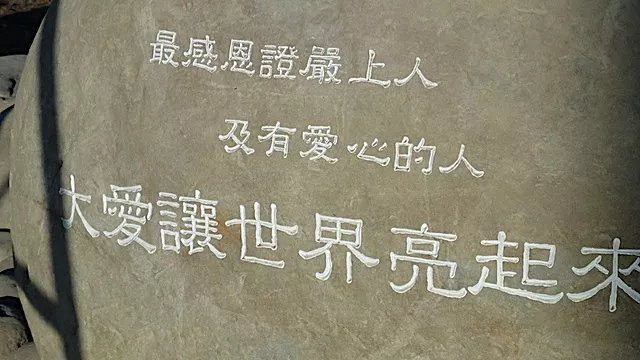 最感恩證嚴上人
及有愛心的人
大愛讓世界亮起來